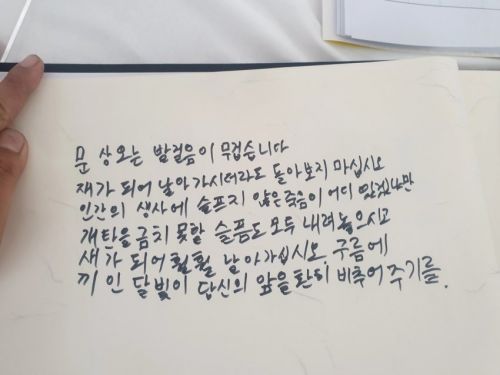 문 상오는 발걸음이 무겁습니다
재가 되어 날아가시더라도 돌아보지 마십시오
인간의 생사에 슬프지 않은 죽음이 어디 있겠냐만
개탄을 금치 못할 슬픔도 모두 내려놓으시고
새가 되어 훨훨 날아가십시오. 구름에
끼인 달빛이 당신의 앞을 환히 비추어 주기를.